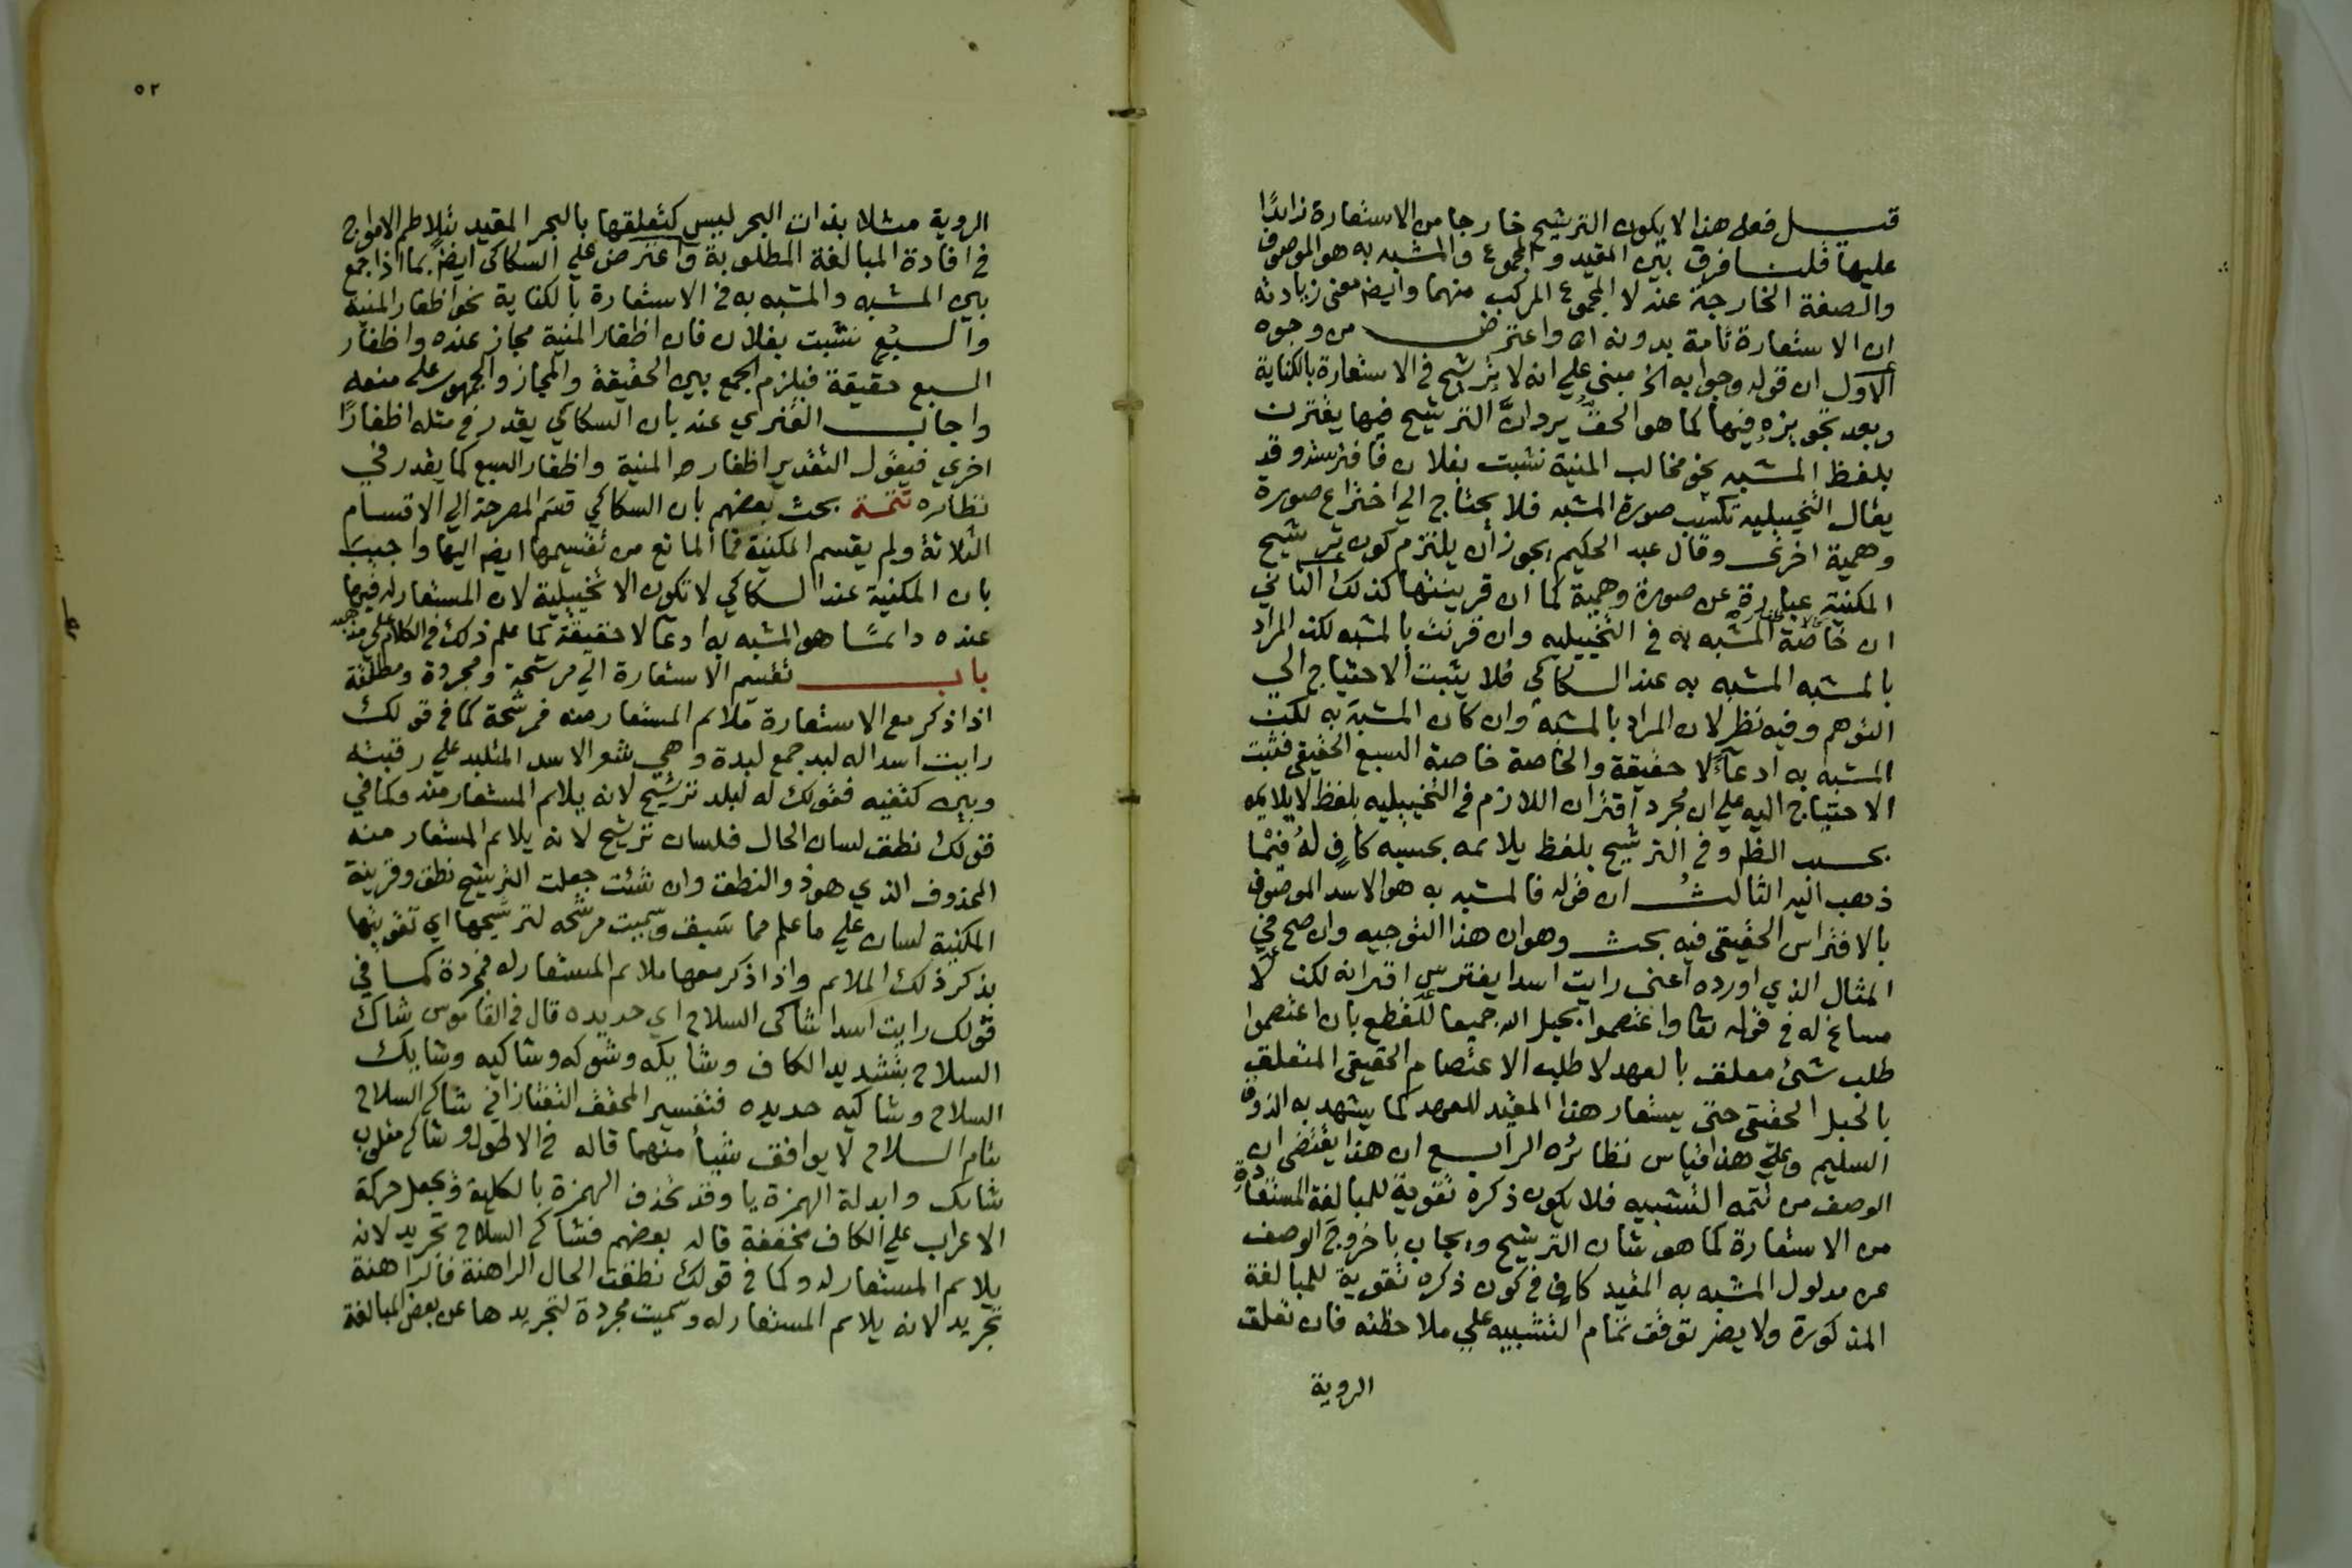 قيل فعلى هذا لا يكون الترشيح خارجا من الاستعارة زايدًا
عليها قلنا فرق بين المقيد والمجموع والمشبه به هو الموصوف
والصفة الخارجة عنه لا المجموع المركب منهما وايضا معنى زيادته
ان الاستعارة تامة بدونه اه واعترض من وجوه
الاول ان قوله وجوابه الخ مبني علي انه لا ترشيح في الاستعارة بالكناية
وبعد تجويزه فيها كما هو الحق يرد ان الترشيح فيها يقترن
بلفظ المشبه نحو مخالب المنية نشبت بفلان فافترسته وقد
يقال التخييليه تكسب صورة المشبه فلا يحتاج الي اختراع صورة
وهمية اخرى وقال عبد الحكيم يجوز ان يلتزم كون ترشيح
المكنية عبارة عن صورة وهمية كما ان قرينتها كذلك الثاني
ان خاصة المشبه به في التخييليه وان قرنت بالمشبه لكن المراد
بالمشبه المشبه به عند السكاكي فلا يثبت الاحتياج الي
التوهم وفيه نظر لان المراد بالمشبه وان كان المشبه به لكن
المشبه به ادعاءً لا حقيقة والخاصة خاصة السبع الحقيقي فثبت
الاحتياج اليه علي ان مجرد اقتران اللازم في التخييليه بلفظ لا يلايمه
بحسب الظ وفي الترشيح بلفظ يلايمه بحسبه كافٍ له فيما
ذهب اليه الثالث ان قوله فالمشبه به هو الاسد الموصوف
بالافتراس الحقيقي فيه بحث وهو ان هذا التوجيه وان صح في
المثال الذي اورده اعنى رايت اسدا يفترس اقرانه لكن لا
مساغ له في قوله تعا واعتصموا بحبل الله جميعا للقطع بان اعتصموا
طلب شئ معلق بالعهد لا طلب الاعتصام الحقيقي المتعلق
بالحبل الحقيقي حتى يستعار هذا المقيد للعهد كما يشهد به الذوق
السليم وعلي هذا قياس نظائره الرابع ان هذا يقتضى ان
الوصف من تتمه التشبيه فلا يكون ذكره تقوية للمبالغة المستفادة
من الاستعارة كما هو شان الترشيح ويجاب باخروج الوصف
عن مدلول المشبه به المقيد كاف في كون ذكره تقوية للمبالغة
المذكورة ولا يضر توقف تمام التشبيه علي ملاحظته فان تعلق
الروية
٥٢
الروية مثلا بذات البحر ليس كتعلقها بالبحر المقيد بتلاطم الامواج
في افادة المبالغة المطلوبة واعترض علي السكاكى ايضا بما اذا جمع
بين المشبه والمشبه به في الاستعارة بالكناية نحو اظفار المنية
والسبُع نشبت بفلان فان اظفار المنية مجاز عنده واظفار
السبع حقيقة فيلزم الجمع بين الحقيقة والمجاز والجمهور على منعه
واجاب الفنري عنه بان السكاكي يقدر في مثله اظفارًا
اخري فيقول التقدير اظفار المنية واظفار السبع كما يقدر في
نظائره تتمة بحث بعضهم بان السكاكي قسم المصرحة الي الاقسام
الثلاثة ولم يقسم المكنية فما المانع من تقسيمها ايضا اليها واجيب
بان المكنية عند السكاكي لا تكون الا تخييلية لان المستعار له فيها
عنده دائمًا هو المشبه به ادعا لا حقيقة كما علم ذلك في الكلام علي مذهبه
باب تقسيم الاستعارة الي مرشحة ومجردة ومطلقة
اذا ذكر مع الاستعارة ملائم المستعار منه فمرشحة كما في قولك
رايت اسدا له لبد جمع لبدة وهي شعر الاسد المتلبد علي رقبته
وبين كتفيه فقولك له لبد ترشيح لانه يلائم المستعار منه وكما في
قولك نطق لسان الحال فلسان ترشيح لانه يلائم المستعار منه
المحذوف الذي هو ذو النطق وان شئت جعلت الترشيح نطق وقرينة
المكنية لسان علي ما علم مما سَبق وسميت مرشحه لترشيحها اي تقويتها
بذكر ذلك الملائم واذا ذكر معها ملائم المستعار له فمجردة كما في
قولك رايت اسدا شاكى السلاح اي حديده قال في القاموس شاك
السلاح بتشديد الكاف وشايكه وشوكه وشاكيه وشايك
السلاح وشاكيه حديده فتفسير المحقق التفتازاني شاكي السلاح
بتام السلاح لا يوافق شيأ منهما قاله في الاطول وشاكي مقلوب
شائك وابدلة الهمزة يا وقد تحذف الهمزة بالكلية ويجعل حركة
الاعراب علي الكاف مخففة قاله بعضهم فشاكي السلاح تجريد لانه
يلائم المستعار له وكما في قولك نطقت الحال الراهنة فالراهنة
تجريد لانه يلائم المستعار له وسميت مجردة لتجريدها عن بعض المبالغة